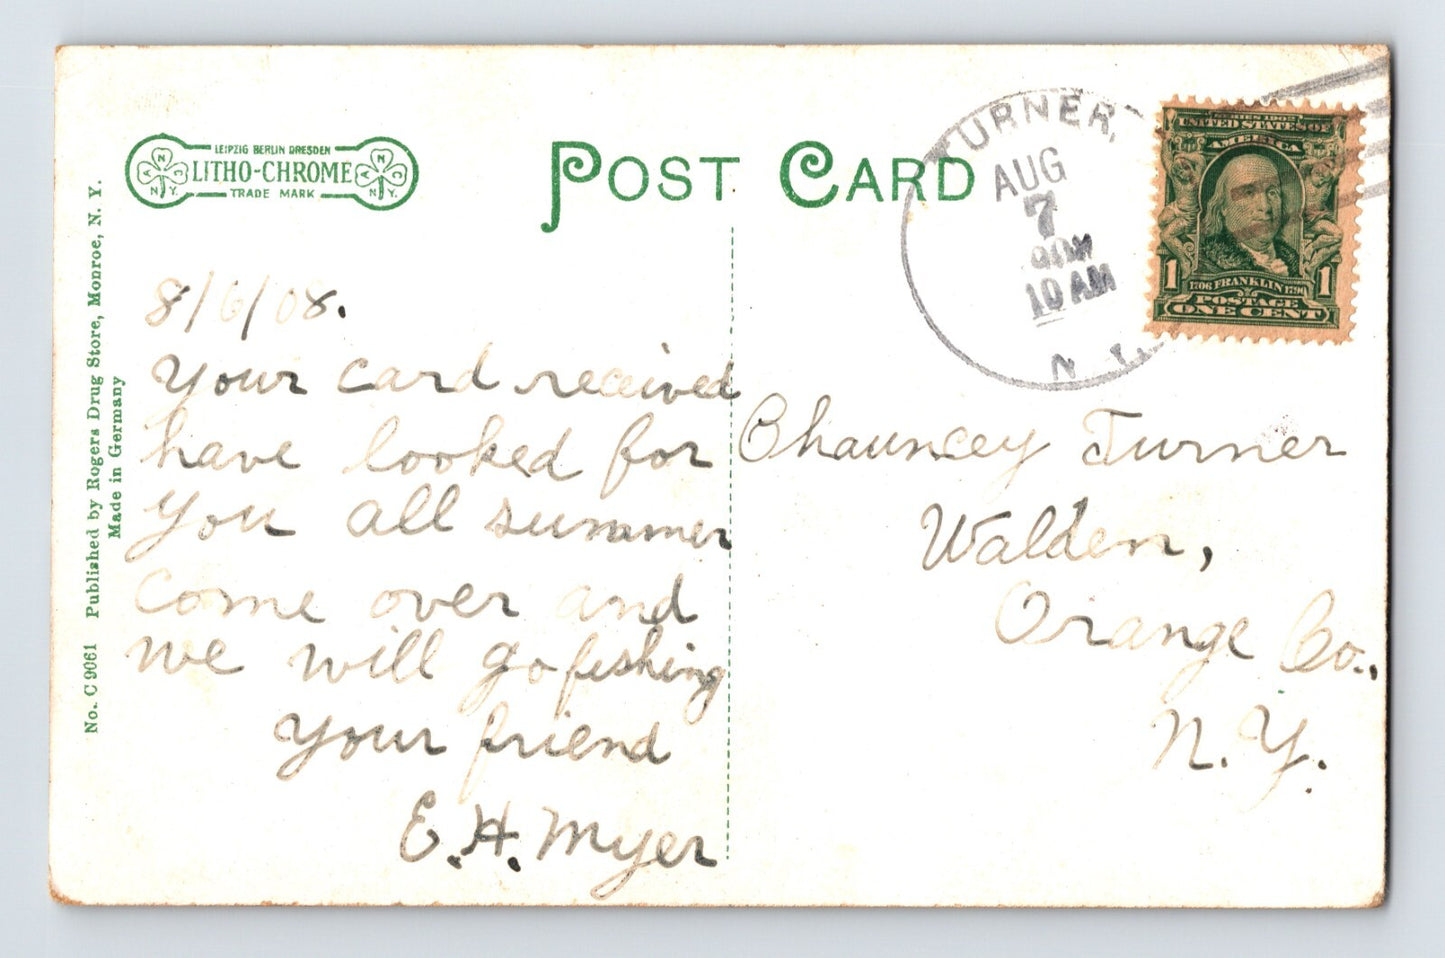 LEIPZIG BERLIN DRESDEN
LITHO-CHROME
TRADE MARK
POST CARD
TURNER,
AUG
7
10 AM
N
SERIES 1902
UNITED STATES OF
AMERICA
1 1706 FRANKLIN 1790 1
POSTAGE
ONE CENT
No. C 9061 Published by Rogers Drug Store, Monroe, N. Y.
Made in Germany
8/6/08.
Your card received
have looked for
you all summer
come over and
we will go fishing
Your friend
E. H. Myer
Chauncey Turner
Walden,
Orange Co.,
N. Y.